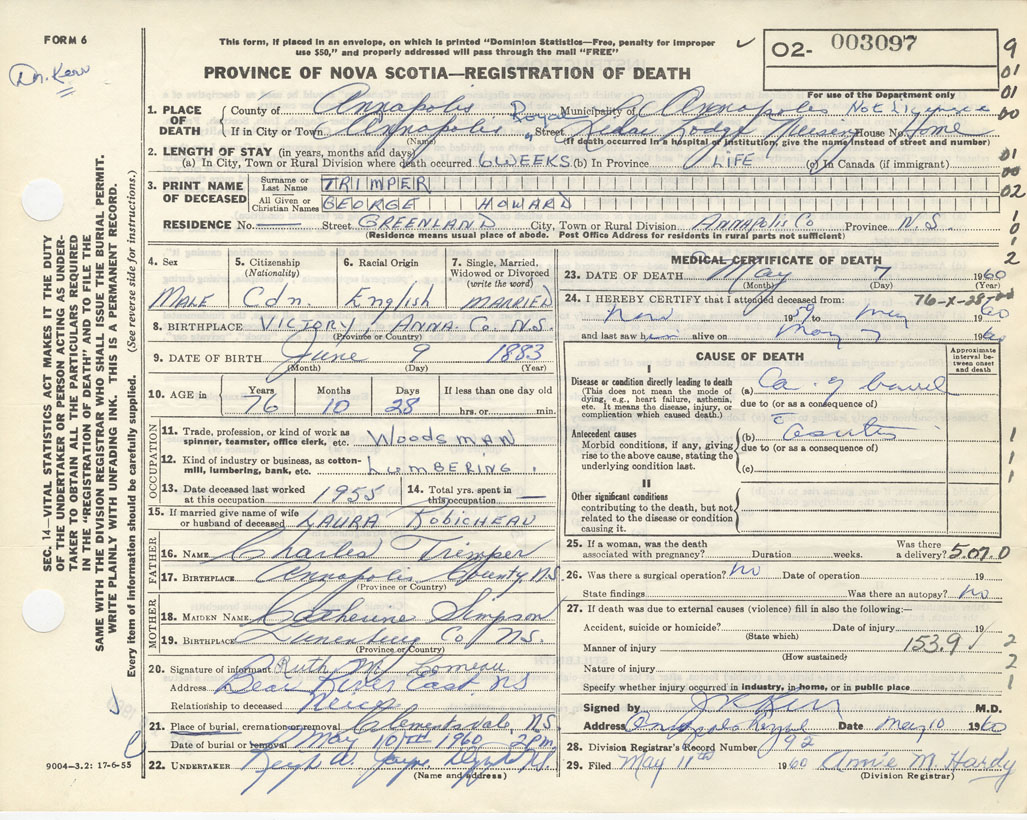 FORM 6
Dr. Kerr
This form, if placed in an envelope, on which is printed "Dominion Statistics—Free, penalty for improper
use $50," and properly addressed will pass through the mail "FREE"
O2- 003097
For use of the Department only
PROVINCE OF NOVA SCOTIA—REGISTRATION OF DEATH
1. PLACE OF DEATH
County of Annapolis Municipality of Annapolis Not Licence
If in City or Town Annapolis Royal Street Lodge House No. Home
(Name) (If death occurred in a hospital or institution, give the name instead of street and number)
2. LENGTH OF STAY (in years, months and days)
(a) In City, Town or Rural Division where death occurred 6 WEEKS (b) In Province LIFE (c) In Canada (if immigrant)
3. PRINT NAME OF DECEASED
Surname or Last Name TRIMPER
All Given or Christian Names GEORGE HOWARD
RESIDENCE No. — Street GREENLAND City, Town or Rural Division Annapolis Co Province N.S.
(Residence means usual place of abode. Post Office Address for residents in rural parts not sufficient)
4. Sex
MALE
5. Citizenship
(Nationality)
Cdn.
6. Racial Origin
English
7. Single, Married, Widowed or Divorced
(write the word)
MARRIED
8. BIRTHPLACE VICTORY, ANNA. Co. N.S.
(Province or Country)
9. DATE OF BIRTH June 9 1883
(Month) (Day) (Year)
10. AGE in Years 76 Months 10 Days 28 If less than one day old hrs. or min.
OCCUPATION
11. Trade, profession, or kind of work as spinner, teamster, office clerk, etc. WOODSMAN
12. Kind of industry or business, as cotton-mill, lumbering, bank, etc. LUMBERING.
13. Date deceased last worked at this occupation 1955
14. Total yrs. spent in this occupation —
15. If married give name of wife or husband of deceased LAURA ROBICHEAU
FATHER
16. NAME Charles Trimper
17. BIRTHPLACE Annapolis County NS
(Province or Country)
MOTHER
18. MAIDEN NAME Catherine Simpson
19. BIRTHPLACE Lunenburg Co NS.
(Province or Country)
20. Signature of informant Ruth M. Comeau
Address Bear River East, NS
Relationship to deceased Neice
21. Place of burial, cremation or removal Clementsvale, N.S.
Date of burial or removal May 10th 1960 - 2 P.M.
22. UNDERTAKER
(Name and address)
MEDICAL CERTIFICATE OF DEATH
23. DATE OF DEATH May 7 1960
(Month) (Day) (Year)
24. I HEREBY CERTIFY that I attended deceased from: 76-X-28
Nov 1959 to May 1960
and last saw him alive on May 7 1960
CAUSE OF DEATH
Approximate interval between onset and death
I
Disease or condition directly leading to death
(This does not mean the mode of dying, e.g., heart failure, asthenia, etc. It means the disease, injury, or complication which caused death.)
(a) Ca. of bowel
due to (or as a consequence of)
Antecedent causes
Morbid conditions, if any, giving rise to the above cause, stating the underlying condition last.
(b)
due to (or as a consequence of)
(c)
II
Other significant conditions
contributing to the death, but not related to the disease or condition causing it.
25. If a woman, was the death associated with pregnancy? Duration weeks. Was there a delivery? 507.0
26. Was there a surgical operation? no Date of operation 19
State findings Was there an autopsy? no
27. If death was due to external causes (violence) fill in also the following:—
Accident, suicide or homicide? Date of injury 19
(State which)
Manner of injury 153.9
(How sustained)
Nature of injury
Specify whether injury occurred in industry, in home, or in public place
Signed by J R Kerr M.D.
Address Annapolis Royal Date May 10 1960
28. Division Registrar's Record Number 92
29. Filed May 11th 1960 Annie M. Hardy
(Division Registrar)
SEC. 14—VITAL STATISTICS ACT MAKES IT THE DUTY
OF THE UNDERTAKER OR PERSON ACTING AS UNDER-
TAKER TO OBTAIN ALL THE PARTICULARS REQUIRED
IN THE "REGISTRATION OF DEATH" AND TO FILE THE
SAME WITH THE DIVISION REGISTRAR WHO SHALL ISSUE THE BURIAL PERMIT.
WRITE PLAINLY WITH UNFADING INK. THIS IS A PERMANENT RECORD.
Every item of information should be carefully supplied. (See reverse side for instructions.)
9004—3.2: 17-6-55
9
01
01
00
01
00
02
1
0
1
2
1
1
1
1
2
2
1